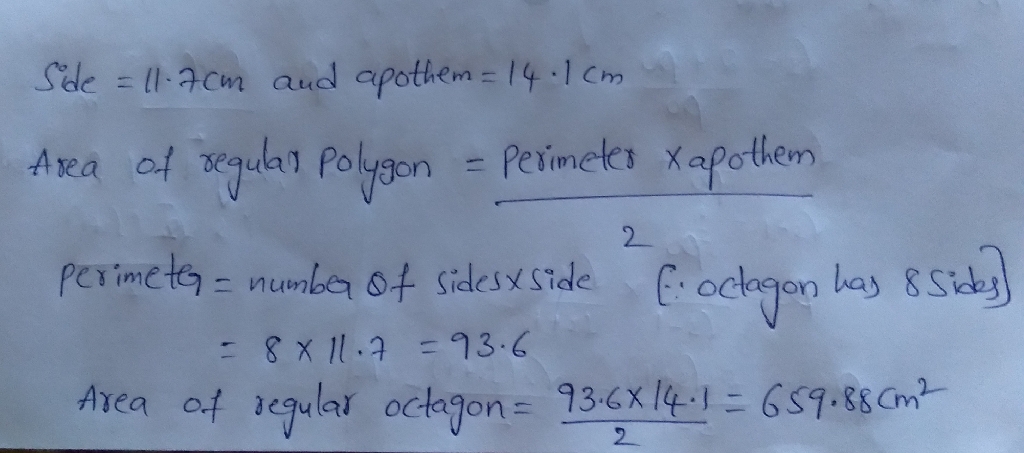 Side = 11.7cm and apothem = 14.1 cm
Area of regular Polygon = Perimeter x apothem
2
Perimeter = number of sides x side [∵ octagon has 8 Sides]
= 8 x 11.7 = 93.6
Area of regular octagon = 93.6 x 14.1 = 659.88 cm²
2